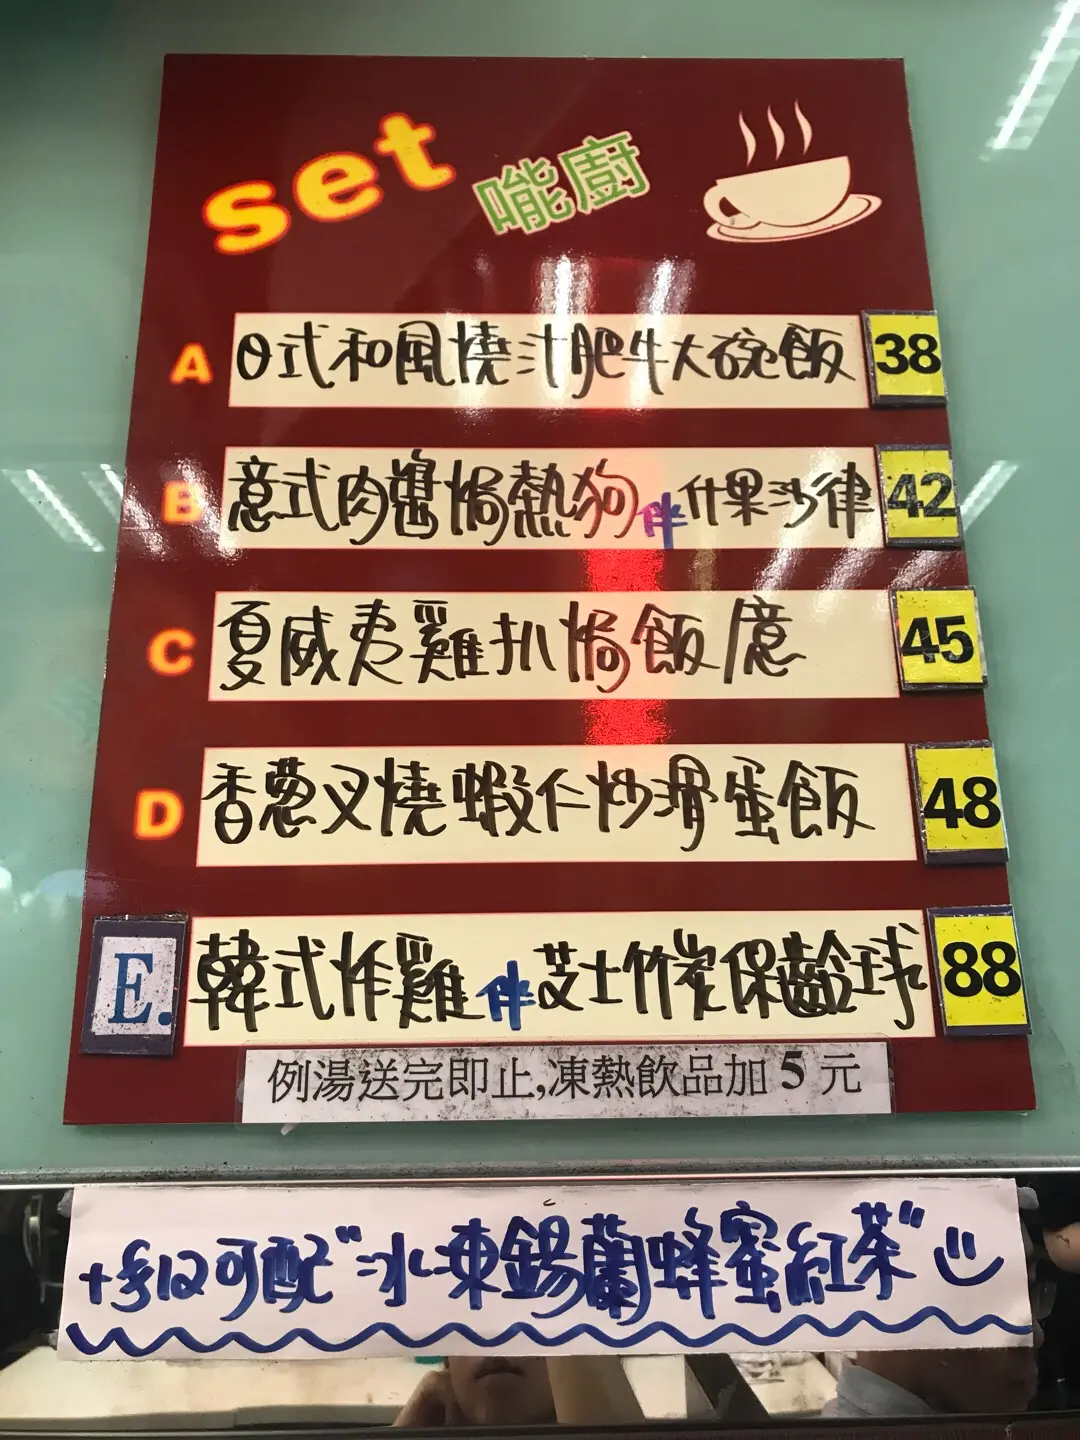 set 嚨廚
A 日式和風燒汁肥牛大碗飯 38
B 意式肉醬焗熱狗伴什果沙律 42
C 夏威夷雞扒焗飯意 45
D 香蔥叉燒蝦仁炒滑蛋飯 48
E. 韓式炸雞伴芝士竹炭保齡球 88
例湯送完即止,凍熱飲品加 5 元
+$12可配"冰凍錫蘭蜂蜜紅茶"